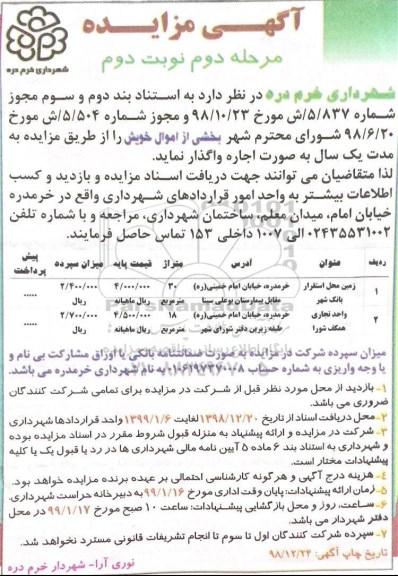 آگهی مزایده
مرحله دوم نوبت دوم
شهرداری خرم دره
شهرداری خرم دره در نظر دارد به استناد بند دوم و سوم مجوز
شماره ۵/۸۳۷/ش مورخ ۹۸/۱۰/۲۳ و مجوز شماره ۵/۵۰۴/ش مورخ
۹۸/۶/۲۰ شورای محترم شهر بخشی از اموال خویش را از طریق مزایده به
مدت یک سال به صورت اجاره واگذار نماید.
لذا متقاضیان می توانند جهت دریافت اسناد مزایده و بازدید و کسب
اطلاعات بیشتر به واحد امور قراردادهای شهرداری واقع در خرمدره
خیابان امام، میدان معلم، ساختمان شهرداری، مراجعه و با شماره تلفن
۰۲۴۳۵۵۳۱۰۰۲ الی ۱۰۰۷ داخلی ۱۵۳ تماس حاصل فرمایند.
ردیف عنوان آدرس متراژ قیمت پایه میزان سپرده پیش پرداخت
۱ زمین محل استقرار بانک شهر خرمدره، خیابان امام خمینی(ره) مقابل بیمارستان بوعلی سینا ۳۰ مترمربع ۴/۰۰۰/۰۰۰ ریال ماهیانه ۲/۴۰۰/۰۰۰ ریال .....
۲ واحد تجاری همکف شورا خرمدره، خیابان امام خمینی(ره) طبقه زیرین دفتر شورای شهر ۱۸ مترمربع ۴/۵۰۰/۰۰۰ ریال ماهیانه ۲/۷۰۰/۰۰۰ ریال .....
میزان سپرده شرکت در مزایده به صورت ضمانتنامه بانکی یا اوراق مشارکت بی نام و
یا وجه واریزی به شماره حساب به نام شهرداری خرمدره می باشد.
۱- بازدید از محل مورد نظر قبل از شرکت در مزایده برای تمامی شرکت کنندگان
ضروری می باشد.
۲- محل دریافت اسناد از تاریخ ۱۳۹۸/۱۲/۲۰ لغایت ۱۳۹۹/۱/۶ واحد قراردادها شهرداری
۳- شرکت در مزایده و ارائه پیشنهاد به منزله قبول شروط مقرر در اسناد مزایده بوده
و شهرداری به استناد بند ۶ ماده ۵ آیین نامه مالی شهرداری ها در رد یا قبول یک یا کلیه
پیشنهادات مختار است.
۴- هزینه درج آگهی و هرگونه کارشناسی احتمالی بر عهده برنده مزایده خواهد بود.
۵- زمان ارائه پیشنهادات: پایان وقت اداری مورخ ۹۹/۱/۱۶ به دبیرخانه حراست شهرداری.
۶- ساعت، روز و محل بازگشایی پیشنهادات: ساعت ۱۰ صبح مورخ ۹۹/۱/۱۷ در محل
دفتر شهردار می باشد.
۷- سپرده شرکت کنندگان اول تا سوم تا انجام تشریفات قانونی مسترد نخواهد شد.
تاریخ چاپ آگهی: ۹۸/۱۲/۲۴
نوری آرا- شهردار خرم دره